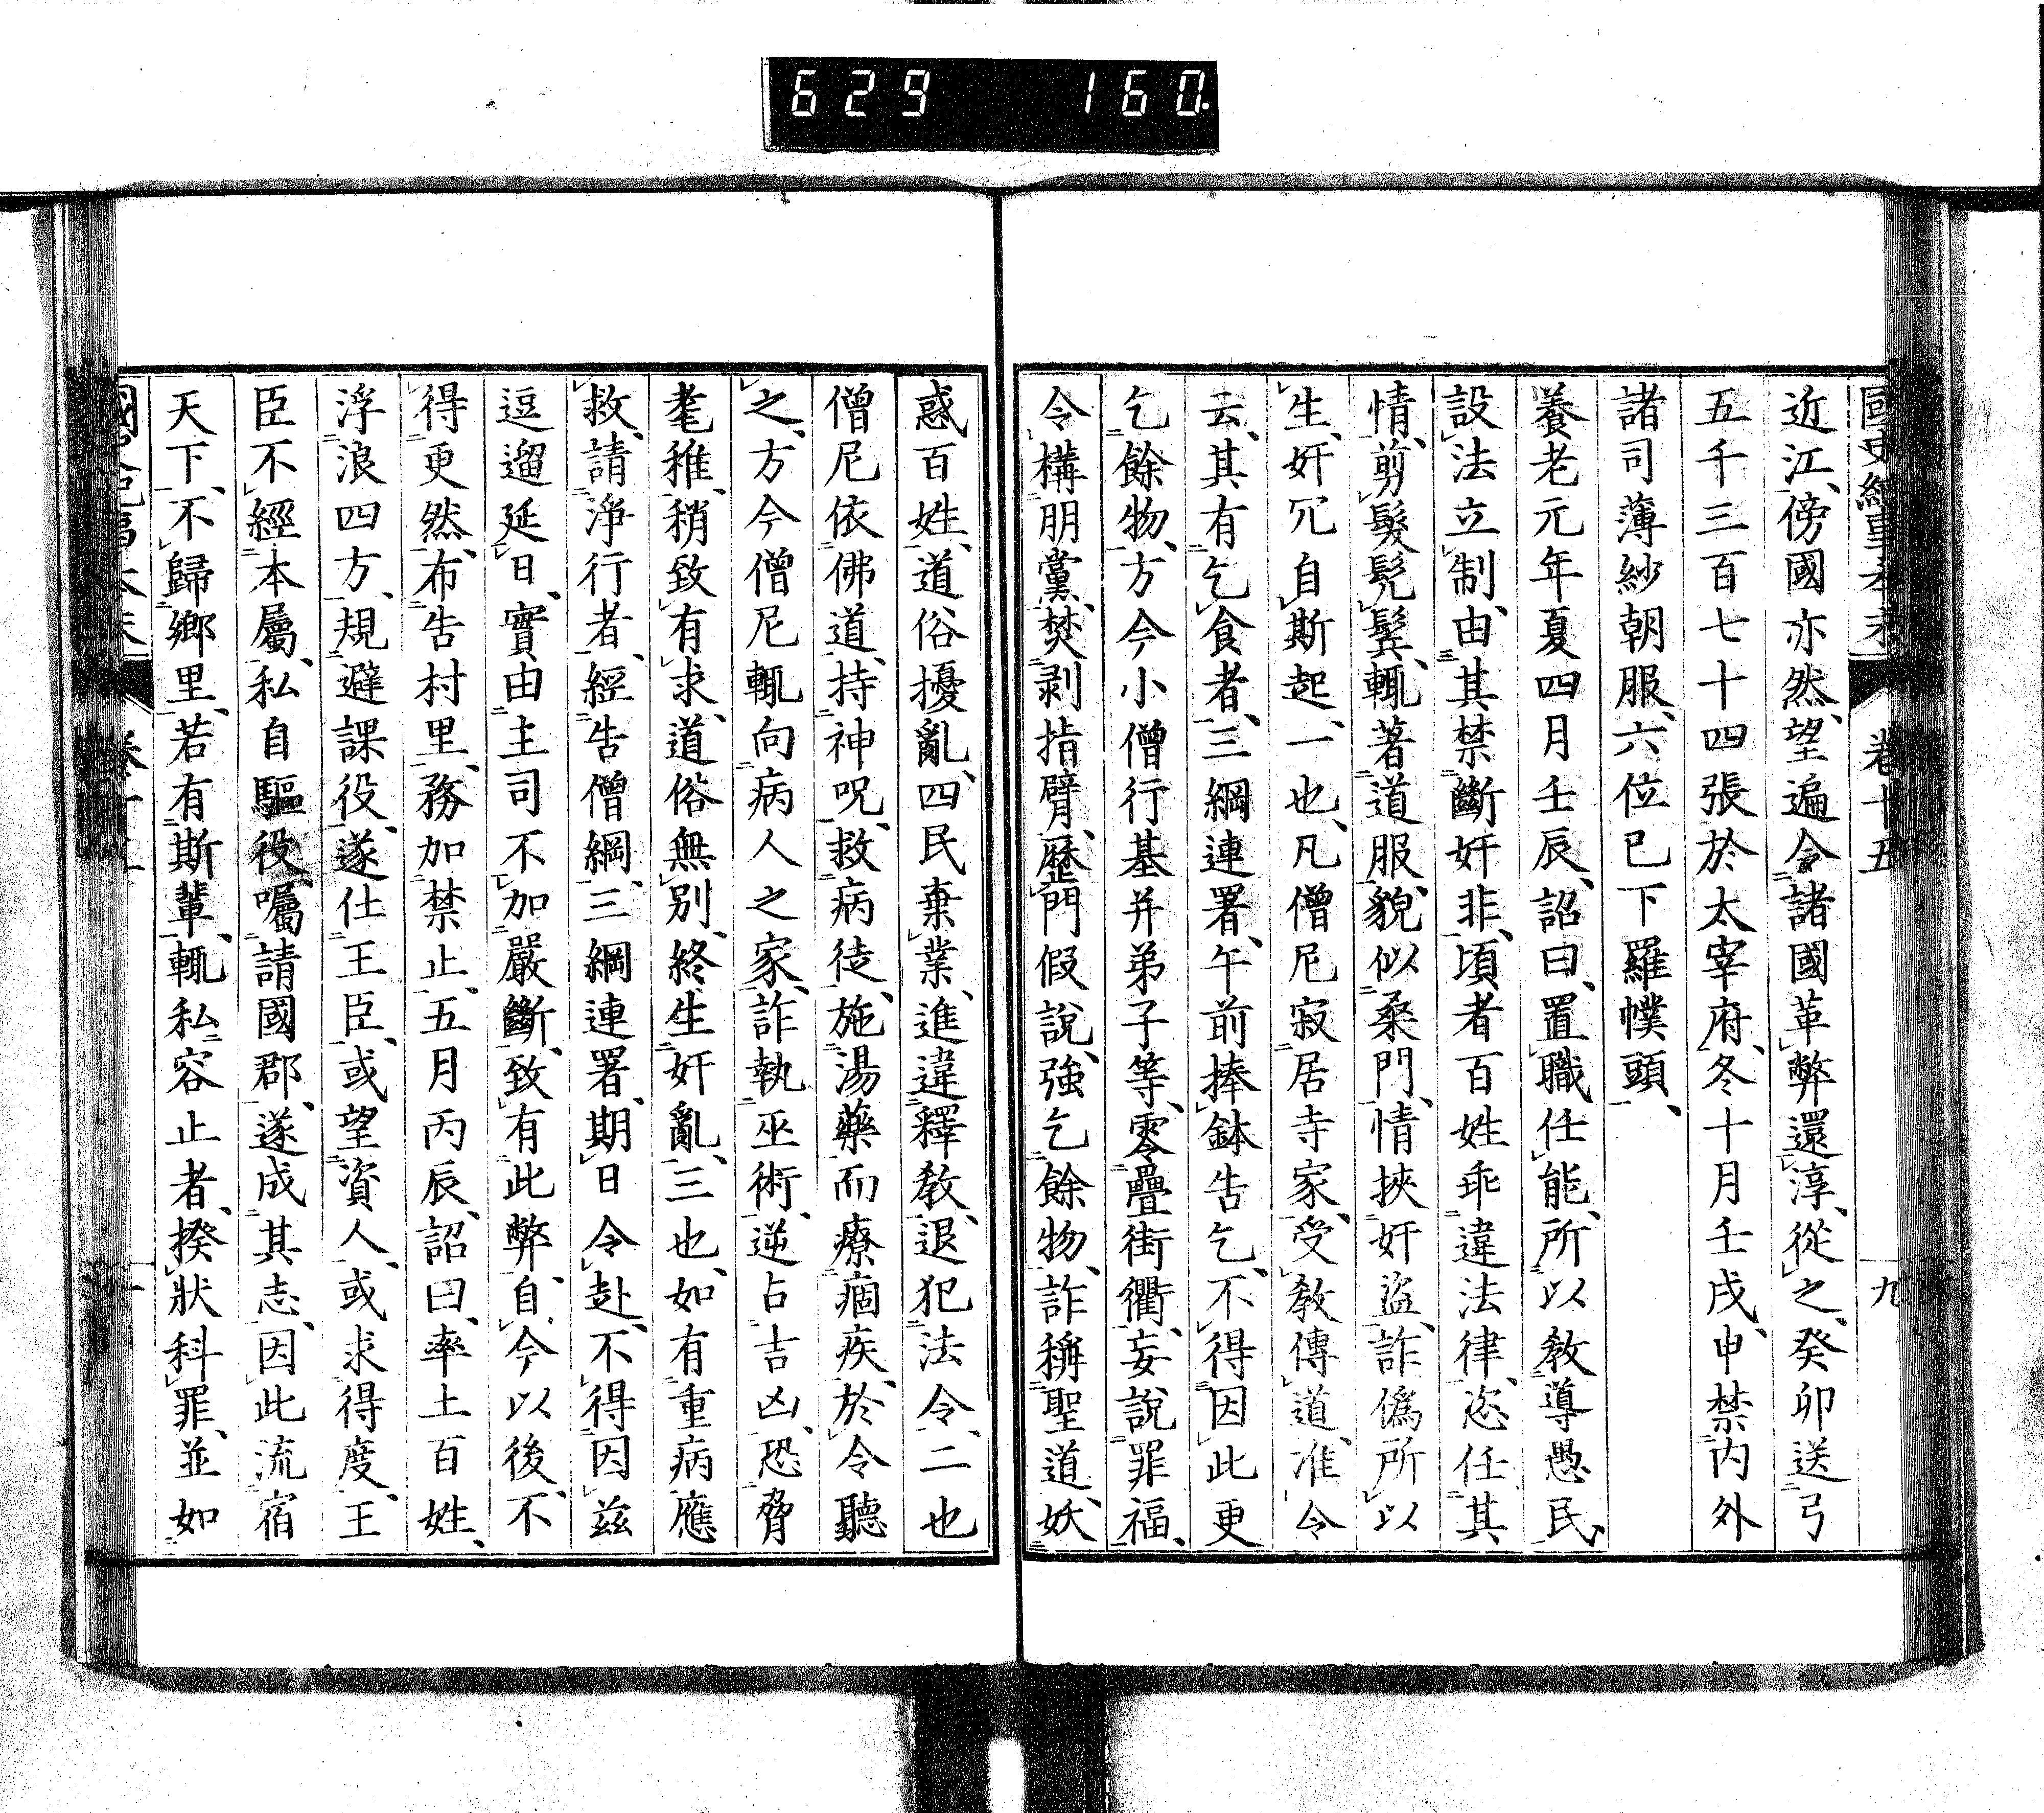 629 160.
國史紀事本末 卷十五 九
近江、傍國亦然、望遍令諸國革弊還淳、從之、癸卯送弓
五千三百七十四張於太宰府、冬十月壬戌、申禁內外
諸司薄紗朝服、六位已下羅幞頭、
養老元年夏四月壬辰、詔曰、置職任能、所以教導愚民、
設法立制、由其禁斷奸非、頃者百姓乖違法律、恣任其
情、剪髮髡鬓、輒著道服、貌似桑門、情挾奸盜、詐僞所以
生、奸宄自斯起、一也、凡僧尼寂居寺家、受教傳道、准令
云、其有乞食者、三綱連署、午前捧鉢告乞、不得因此更
乞餘物、方今小僧行基并弟子等、零疊街衢、妄說罪福、
令構朋黨、焚剥指臂、歷門假說、強乞餘物、詐稱聖道、妖
惑百姓、道俗擾亂、四民棄業、進違釋教、退犯法令、二也
僧尼依佛道、持神呪、救病徒、施湯藥而療痼疾、於令聽
之、方今僧尼輒向病人之家、詐執巫術、逆占吉凶、恐脅
耄稚、稍致有求、道俗無別、終生奸亂、三也、如有重病應
救、請淨行者、經告僧綱、三綱連署、期日令赴、不得因茲
逗遛延日、實由主司不加嚴斷、致有此弊、自今以後、不
得更然、布告村里、務加禁止、五月丙辰、詔曰、率土百姓、
浮浪四方、規避課役、遂仕王臣、或望資人、或求得度、王
臣不經本屬、私自驅役、囑請國郡、遂成其志、因此流宿
天下、不歸鄉里、若有斯輩、輒私容止者、揆狀科罪、並如